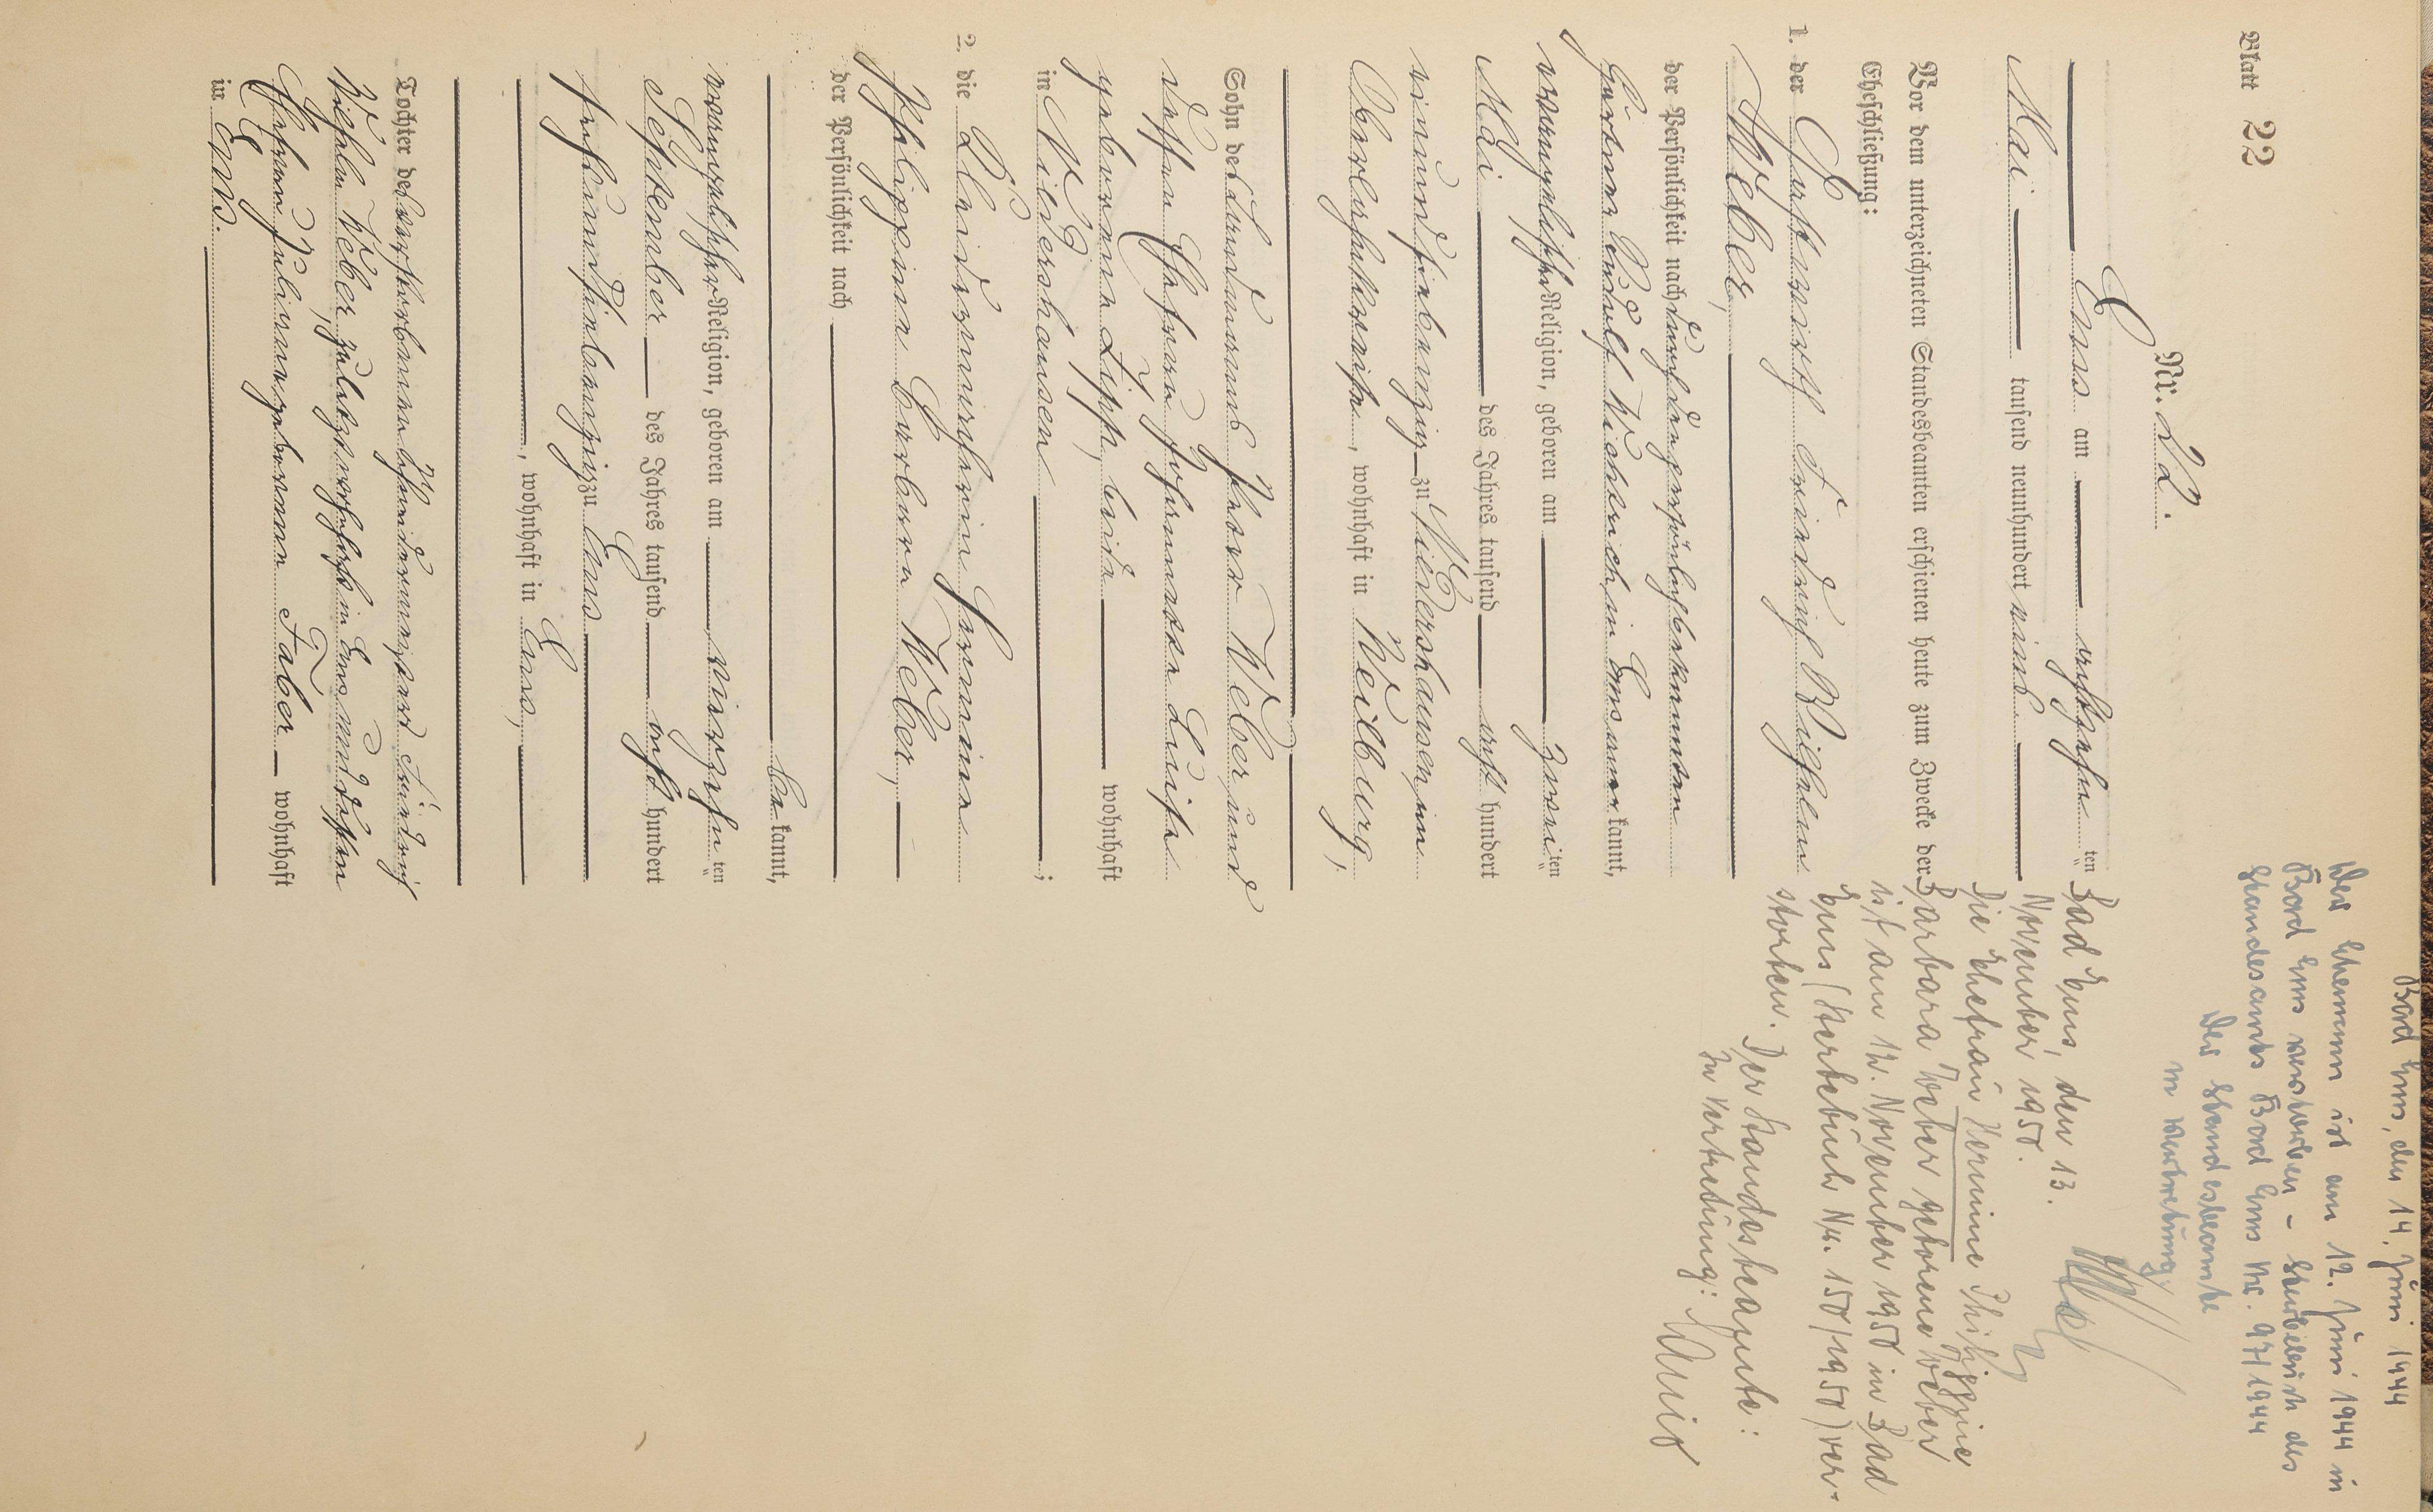 Blatt 22
Nr. 22.
Ems am achtzehn ten
Mai tausend neunhundert eins
Vor dem unterzeichneten Standesbeamten erschienen heute zum Zwecke der
Eheschließung:
1. der Gastwirth Friedrich Wilhelm
Weber,
der Persönlichkeit nach durch den persönlich bekannten
Gärtner Rudolf Wickerich in Ems aner kannt,
evangelischer Religion, geboren am zwei ten
Mai des Jahres tausend acht hundert
einundsiebenzig zu Niedershausen, im
Oberlahnkreise, wohnhaft in Weilburg,
Sohn des Landmanns Weber und
dessen Ehefrau Johannette Luise
geborene Lipp, beide wohnhaft
in Niedershausen ;
2. die Kleidermacherin Hermine
Philippine Barbara Weber,
der Persönlichkeit nach
be kannt,
evangelischer Religion, geboren am vierzehn ten
September des Jahres tausend acht hundert
fünfundsiebenzig zu Ems
, wohnhaft in Ems,
Tochter des verstorbenen Schneidermeisters Friedrich
Wilhelm Weber, zuletzt wohnhaft in Ems und dessen
Ehefrau Juliane geborenen Faber wohnhaft
in Ems.
Bad Ems, den 14. Juni 1944
Der Ehemann ist am 12. Juni 1944 in
Bad Ems verstorben - Sterbebuch des
Standesamts Bad Ems Nr. 97/1944
Der Standesbeamte
in Vertretung:
Bad Ems, den 13.
November 1950.
Die Ehefrau Hermine Philippine
Barbara Weber geborene Weber
ist am 12. November 1950 in Bad
Ems (Sterbebuch Nr. 150/1950) ver-
storben.
Der Standesbeamte:
In Vertretung: